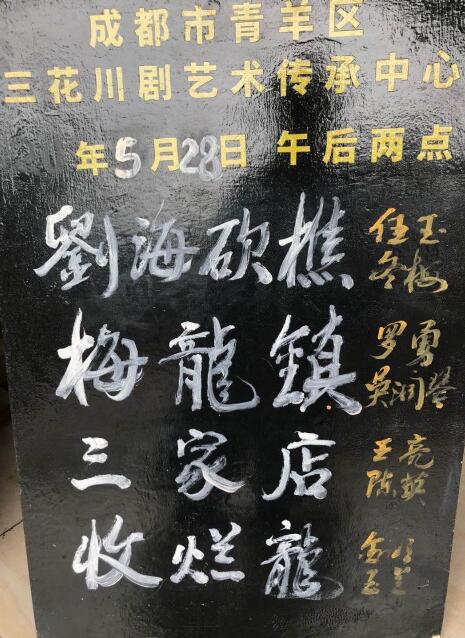 成都市青羊区
三花川剧艺术传承中心
年5月28日 午后两点
劉海砍樵 任玉 冬梅
梅龍鎮 罗勇 吳润琴
三家店 王亮 陈
收烂龍 玉兰